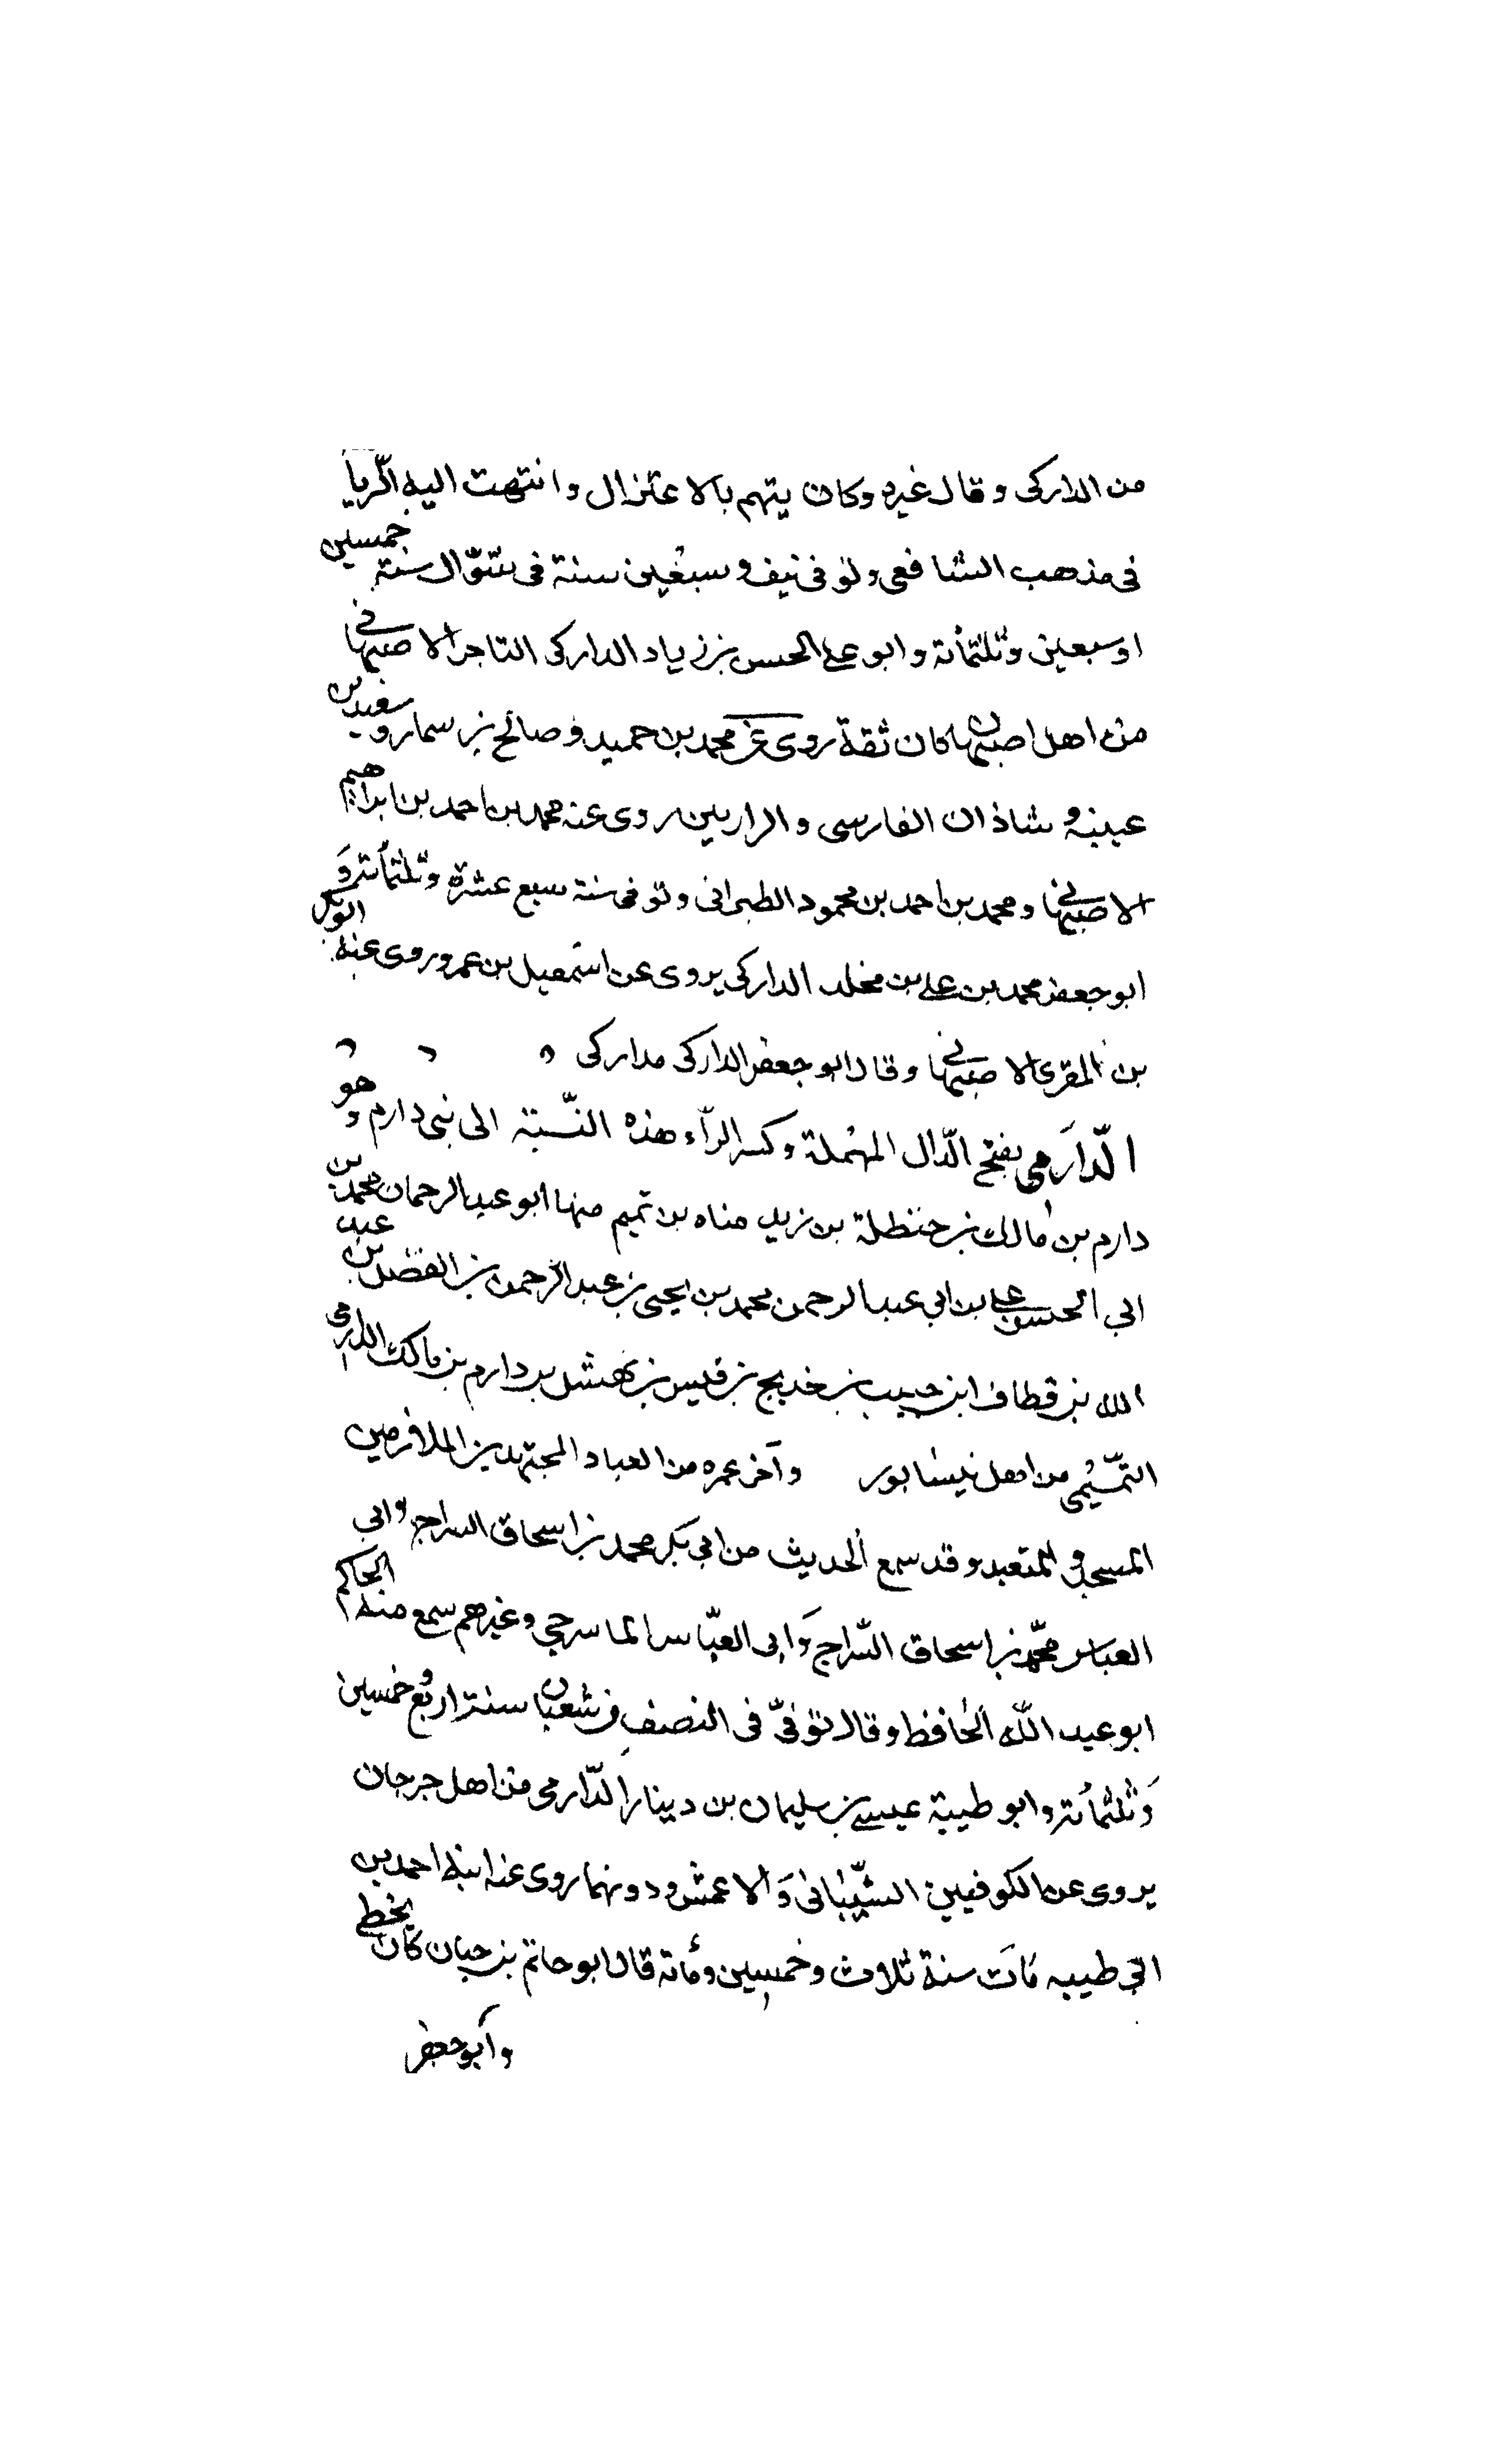 من الداركى وقال غيره وكان يتهم بالاعتزال وانتهت اليه الريا
فى مذهب الشافعى وتوفى نيف وسبعين سنة فى شوّال سنة خمسين
او سبعين وثلثمأنة وابو على الحسن بن زياد الداركى التاجر الاصبهانى
من اهل اصبهان كان ثقة روى عن محمد بن حميد وصالح بن سمار وسعيد بن
عيينه وشاذان الفارسى والرازيين روى عنه محمد بن احمد بن ابراهيم
الاصبهانى ومحمد بن احمد بن محمود الطبرانى وتوفى سنة سبع عشرة وثلثمأئة و
ابو جعفر محمد بن على بن مخلد الداركى يروى عن اسمعيل بن عمرو روى عنه ابو بكر
بن المقرى الاصبهانى وقال ابو جعفر الداركى مداركى
الدّارَمى بفتح الدّال المهملة وكسر الرّاء هذه النّسبة الى بنى دارم وهو
دارم بن مالك بن حنظلة بن زيد مناه بن تميم منها ابو عبد الرحمان محمد بن
ابى الحسن على بن ابى عبد الرحمن محمد بن يحيى بن عبد الرّحمن بن الفضل بن عبد
الله بن قطاف ابن حبيب بن خديج بن قيس بن نهشل بن دارم بن مالك الدارمى
التّميمى من اهل نيسابور وآخر عمره من العباد المجتهدين الملازمين
المسجد والمتعبد وقد سمع الحديث من ابى بكر محمد بن اسحاق السراج وابى
العباس محمّد بن اسحاق السّراج وَابى العبّاس الماسرجى وغيرهم سمع منه الحاكم
ابو عبد اللّه الحافظ وقال توفىّ فى النصف من شعبان سنة اربع وخمسين
وَثلثمأئة وابو طيبة عيسى بن سليمان بن دينار الدّارمى من اهل جرجان
يروى عن الكوفيين الشّيبانى وَالاعمش ودونهما روى عنه ابنه احمد بن
ابى طيبه مَاتَ سنة ثلاث وخمسين ومأئة قال ابو حاتم بن حبان كان يخطى
وأبو جعفر